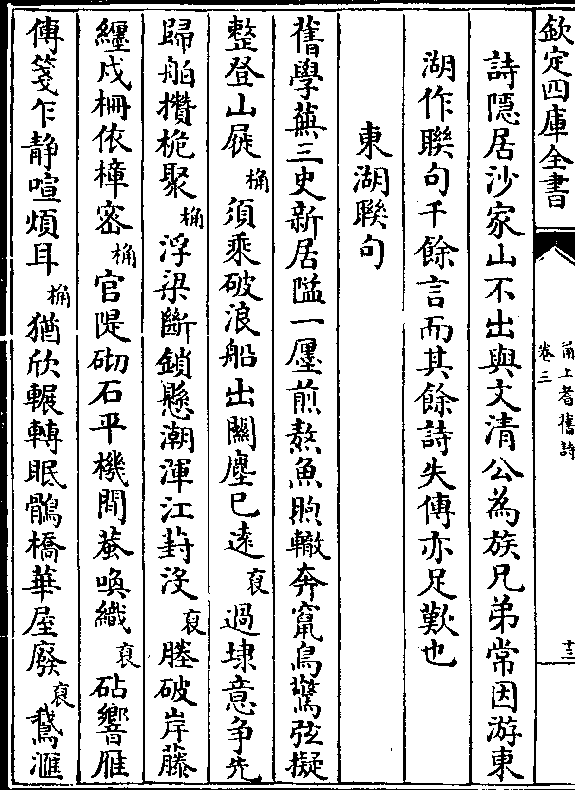 欽定四庫全書
甬上耆舊詩
卷三
十三
詩隱居沙家山不出與文清公為族兄弟常因游東
湖作聯句千餘言而其餘詩失傳亦足歎也
東湖聯句
舊學蕪三史新居隘一廛煎熬魚煦轍奔竄鳥驚弦擬
整登山屐桷須乘破浪船出關塵已遠裒過埭意争先
歸舶攢桅聚桷浮梁斷鎖懸潮渾江葑没裒塍破岸藤
纒戍柵依樟密桷官隄砌石平機間蛬喚織裒砧響雁
傳箋乍静喧煩耳桷猶欣輾轉眠鶻橋華屋廢裒鵞滙